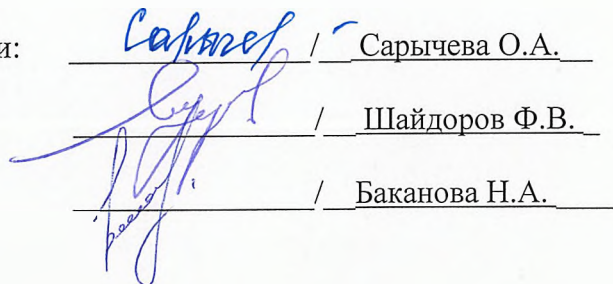 и: Сарычев / Сарычева О.А.
/ Шайдоров Ф.В.
/ Баканова Н.А.